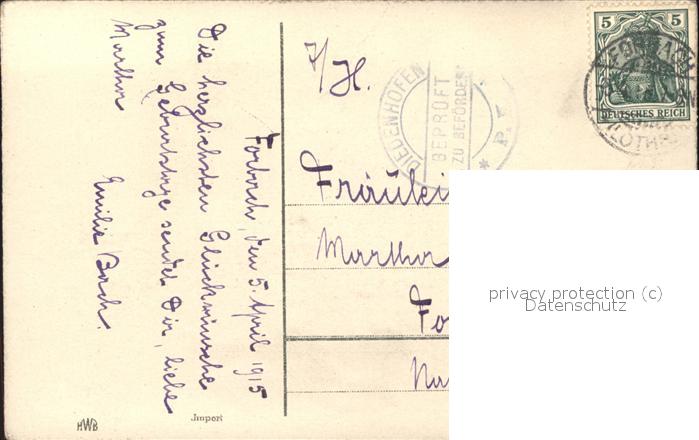 Forbach, den 5. April 1915
Die herzlichsten Glückwünsche
zum Geburtstage sendet Dir, liebe
Martha
Emilie Bach.
HWB
Import
DIEDENHOFEN
GEPRÜFT
ZU BEFÖRDERN
* P.K.
5 5
DEUTSCHES REICH
FORBACH
(LOTHR
Fräulei
Martha
Fo
privacy protection (c)
Datenschutz